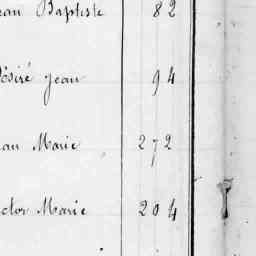 ean Baptiste 82
Désiré Jean 94
ean Marie 272
ictor Marie 204